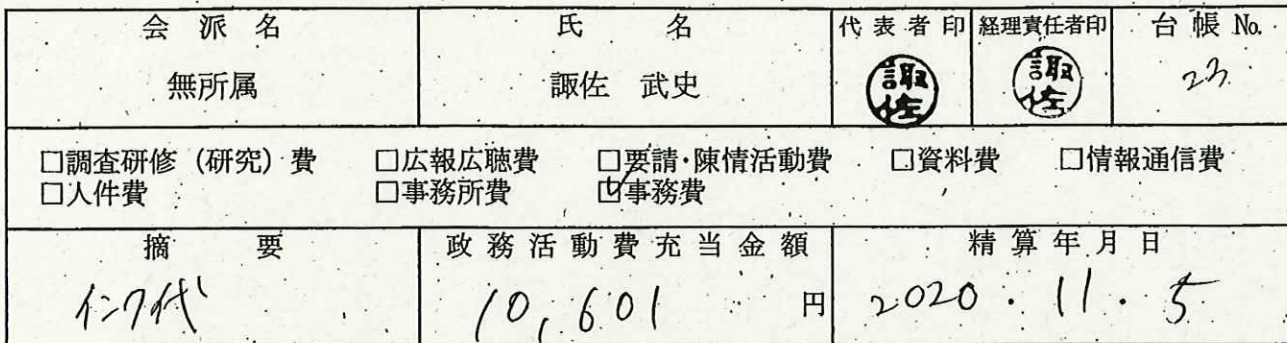 会派名 氏名 代表者印 経理責任者印 台帳No.
無所属 諏佐 武史 諏佐 諏佐 23
□調査研修(研究)費 □広報広聴費 □要請・陳情活動費 □資料費 □情報通信費
□人件費 □事務所費 ☑事務費
摘要 政務活動費充当金額 精算年月日
インク代 10,601 円 2020.11.5